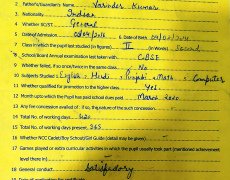 2. Father's/Guardian's Name Varinder Kumar
3. Nationality Indian
4. Whether SC/ST General
5. Date of Admission 6. Date of Birth
7. Class in which the pupil last studied (in figures) II (in Words) Second
8. School/Board Annual examination last taken with CBSE
9. Whether failed, if so once/twice in the same class No
10. Subjects Studied : English, Hindi, Punjabi, Math, Computer
11. Whether qualified for promotion to the higher class Yes
12. Month upto which the Pupil has paid school dues paid March
13. Any fee concession availed of : if so, the nature of such concession
14. Total No. of working days
15. Total No. of working days present 365
16. Whether NCC Cadet/Boy School/Scout/Girl Guide (detail may be given)
17. Games played or extra curricular activities in which the pupil usually took part (mentioned achievement
level there in)
18. General conduct Satisfactory